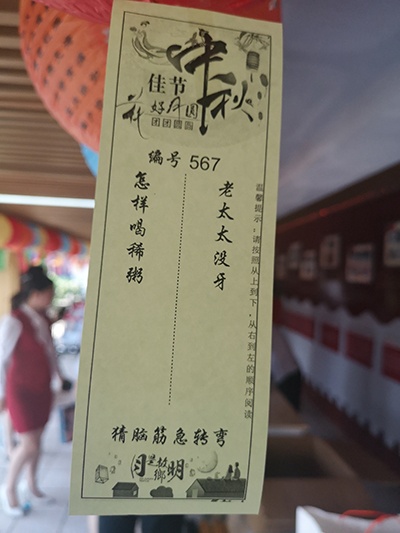 中秋
佳节
花好月圆
团团圆圆
编号 567
老太太没牙
怎样喝稀粥
温馨提示:请按照从上到下、从右到左的顺序阅读
猜脑筋急转弯
月是故乡明